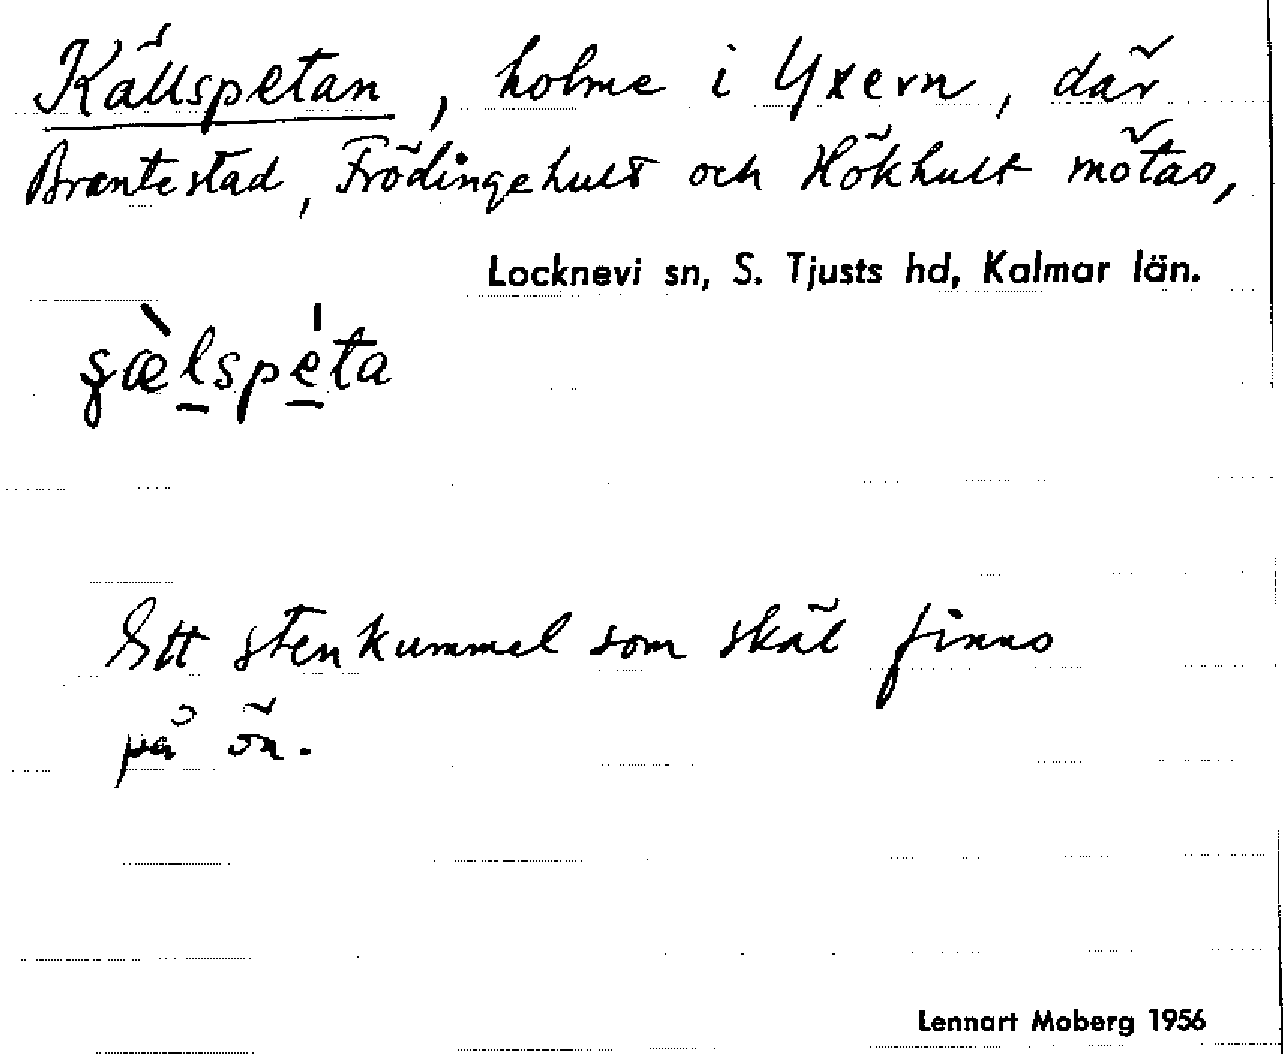 Källspetan, holme i Yxern, där
Brantestad, Frödingehult och Hökhult mötas,
Locknevi sn, S. Tjusts hd, Kalmar län.
Ett stenkummel som skäl finns
på ön.
Lennart Moberg 1956